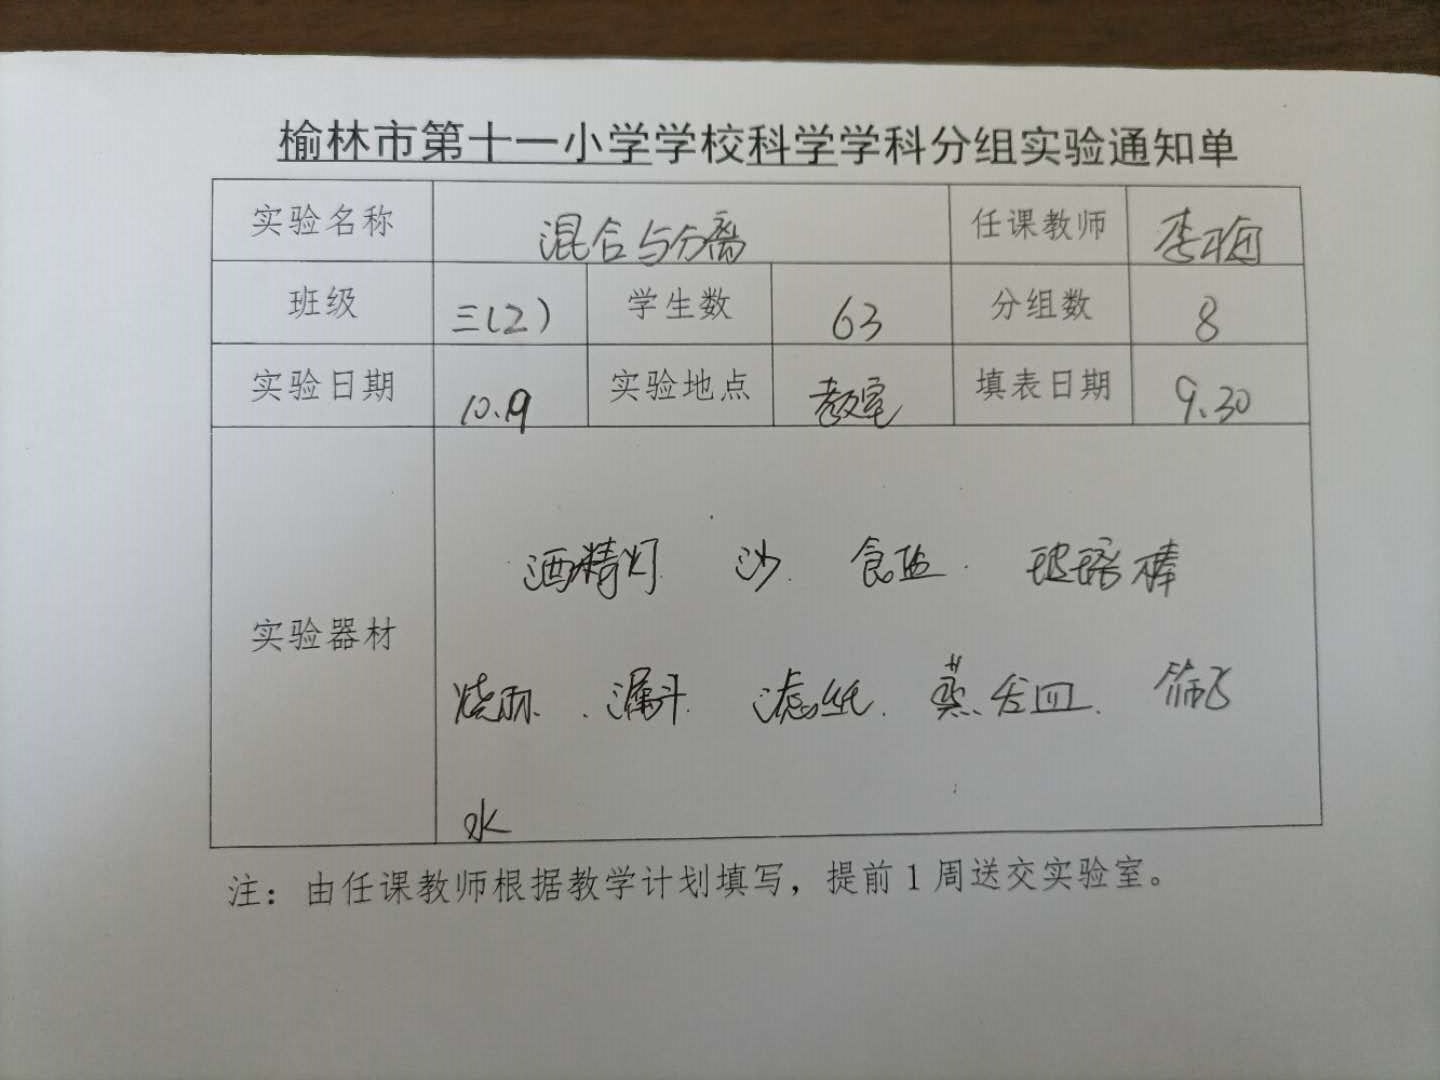 榆林市第十一小学学校科学学科分组实验通知单
实验名称 混合与分离 任课教师 李梅
班级 三(2) 学生数 63 分组数 8
实验日期 10.19 实验地点 教室 填表日期 9.30
酒精灯 沙 食盐 玻璃棒
实验器材
烧杯 漏斗 滤纸 蒸发皿 筛子
水
注：由任课教师根据教学计划填写，提前1周送交实验室。